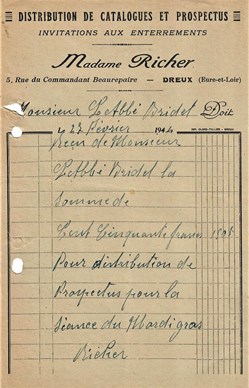 DISTRIBUTION DE CATALOGUES ET PROSPECTUS
INVITATIONS AUX ENTERREMENTS
Madame Richer
5, Rue du Commandant Beaurepaire — DREUX (Eure-et-Loir)
Monsieur L'Abbé Bridel Doit
22 Février 194
Reçu de Monsieur
L'Abbé Bridel la
Somme de
Cent Cinquante francs 150f
Pour distribution de
Prospectus pour la
Séance du Mardi gras
Richer